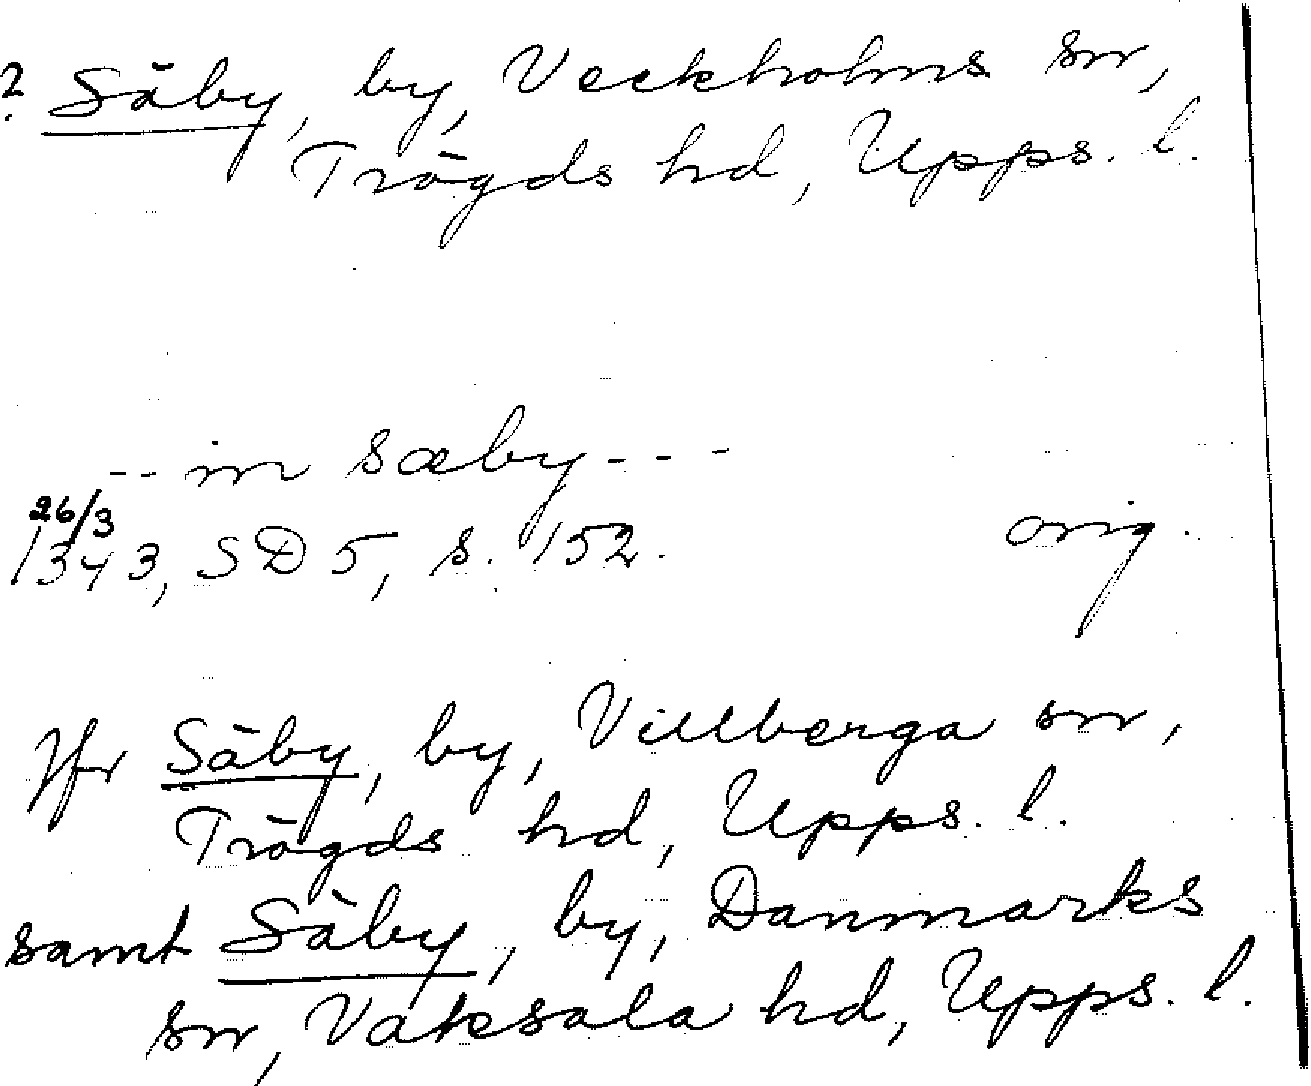 ? Säby, by, Veckholms sn,
Trögds hd, Upps. l.
-- in sæby ---
26/3
1343, SD 5, s. 152. orig.
Jfr Säby, by, Villberga sn,
Trögds hd, Upps. l.
samt Säby, by, Danmarks
sn, Vaksala hd, Upps. l.